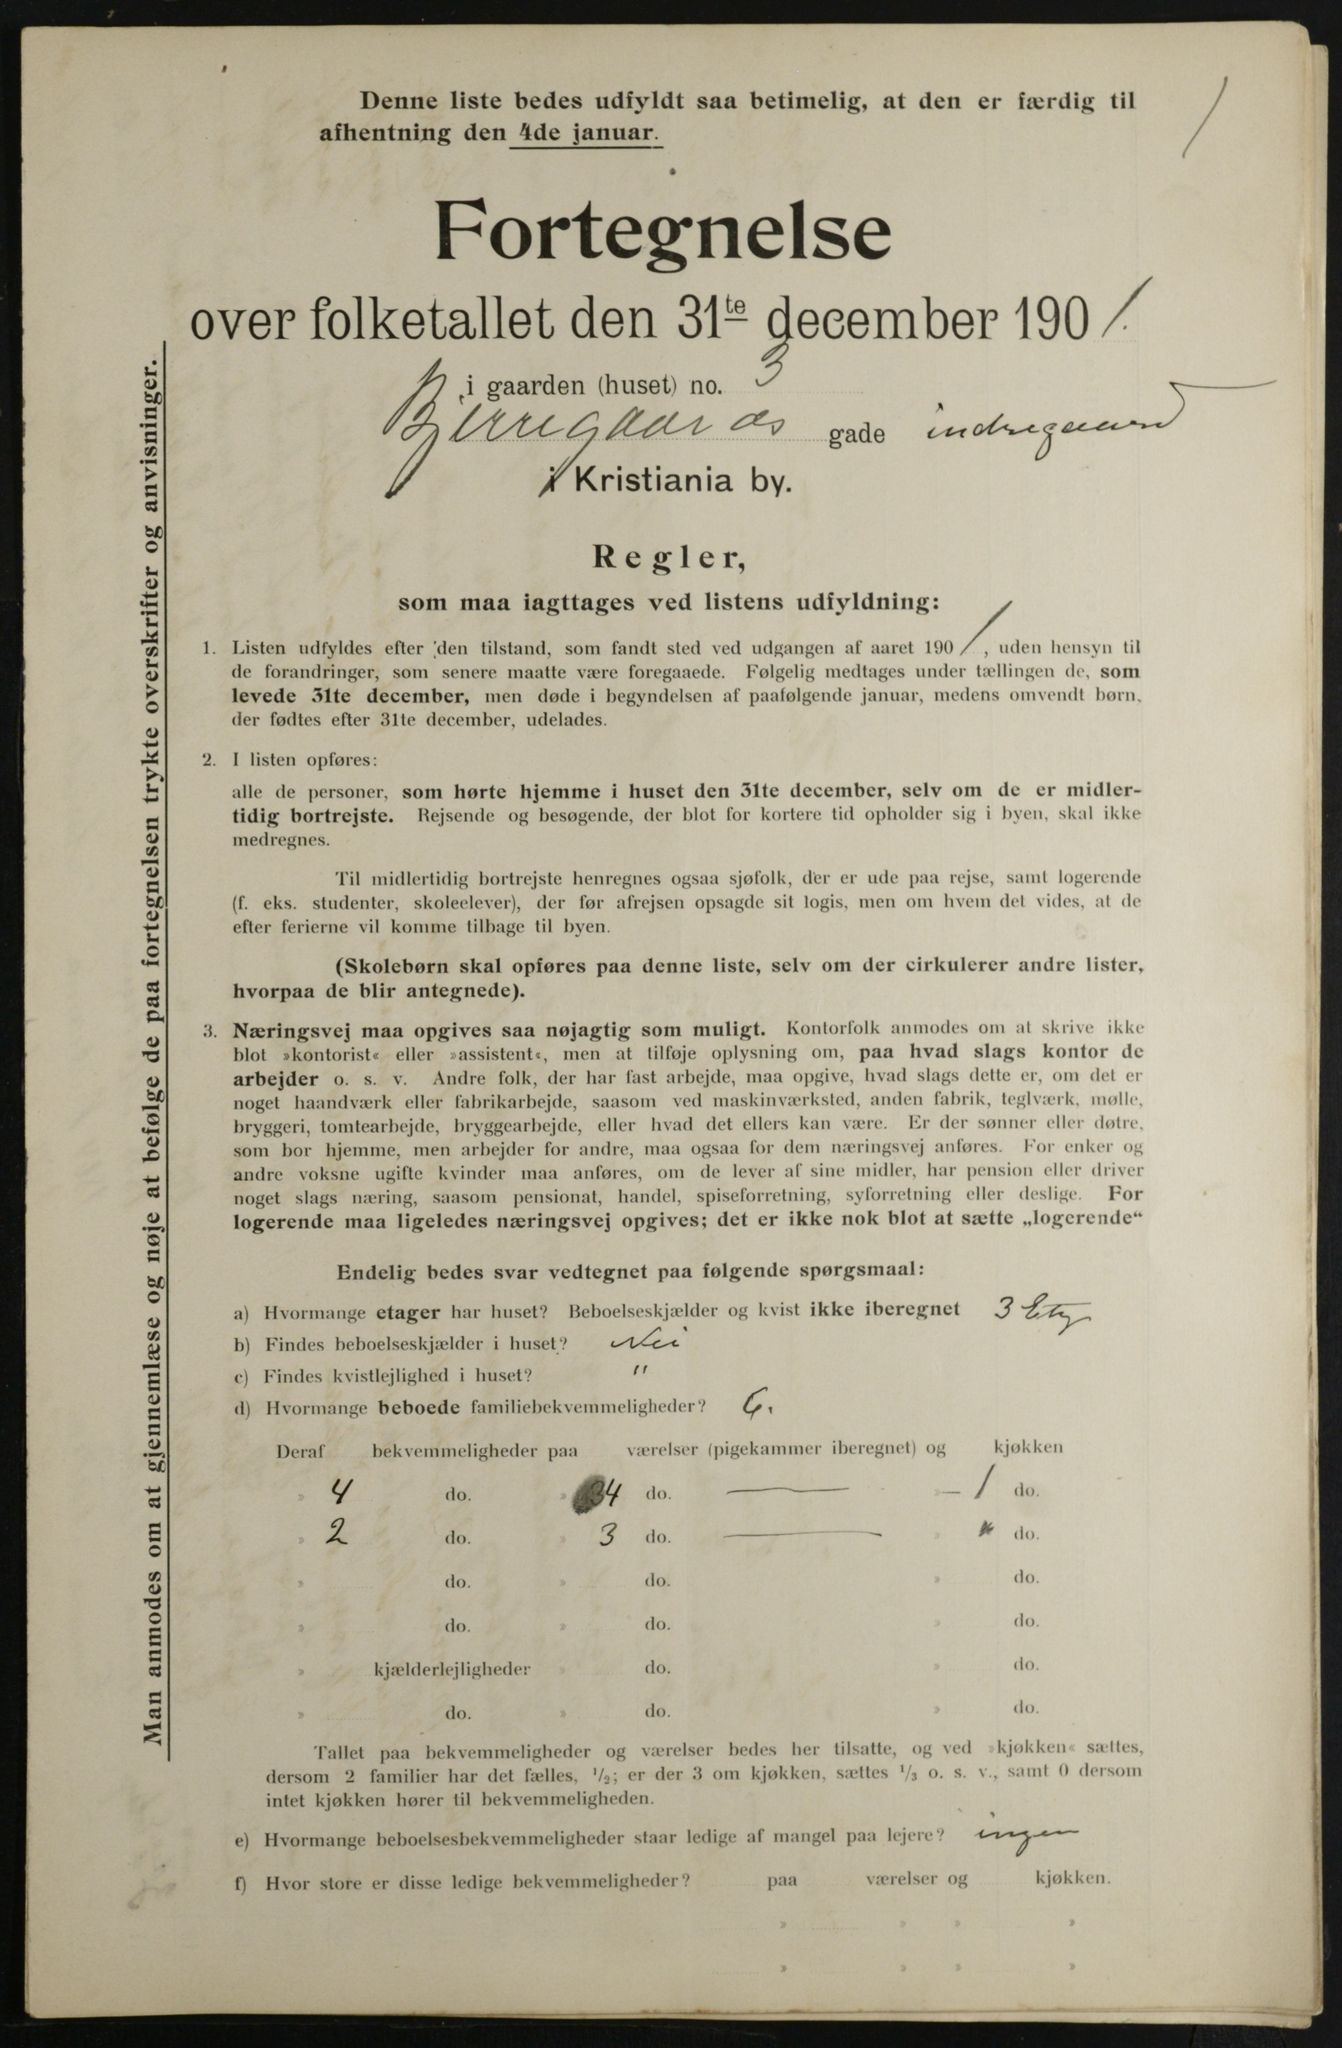 Denne liste bedes udfyldt saa betimelig, at den er færdig til
afhentning den 4de januar.
1
Fortegnelse
over folketallet den 31te december 1901.
i gaarden (huset) no. 3
Bjerregaards gade indregaard
i Kristiania by.
Regler,
som maa iagttages ved listens udfyldning:
1. Listen udfyldes efter den tilstand, som fandt sted ved udgangen af aaret 1901, uden hensyn til
de forandringer, som senere maatte være foregaaede. Følgelig medtages under tællingen de, som
levede 31te december, men døde i begyndelsen af paafølgende januar, medens omvendt børn,
der fødtes efter 31te december, udelades.
2. I listen opføres:
alle de personer, som hørte hjemme i huset den 31te december, selv om de er midler-
tidig bortrejste. Rejsende og besøgende, der blot for kortere tid opholder sig i byen, skal ikke
medregnes.
Til midlertidig bortrejste henregnes ogsaa sjøfolk, der er ude paa rejse, samt logerende
(f. eks. studenter, skoleelever), der før afrejsen opsagde sit logis, men om hvem det vides, at de
efter ferierne vil komme tilbage til byen.
(Skolebørn skal opføres paa denne liste, selv om der cirkulerer andre lister,
hvorpaa de blir antegnede).
3. Næringsvej maa opgives saa nøjagtig som muligt. Kontorfolk anmodes om at skrive ikke
blot »kontorist« eller »assistent«, men at tilføje oplysning om, paa hvad slags kontor de
arbejder o. s. v. Andre folk, der har fast arbejde, maa opgive, hvad slags dette er, om det er
noget haandværk eller fabrikarbejde, saasom ved maskinværksted, anden fabrik, teglværk, mølle,
bryggeri, tomtearbejde, bryggearbejde, eller hvad det ellers kan være. Er der sønner eller døtre,
som bor hjemme, men arbejder for andre, maa ogsaa for dem næringsvej anføres. For enker og
andre voksne ugifte kvinder maa anføres, om de lever af sine midler, har pension eller driver
noget slags næring, saasom pensionat, handel, spiseforretning, syforretning eller deslige. For
logerende maa ligeledes næringsvej opgives; det er ikke nok blot at sætte „logerende“
Endelig bedes svar vedtegnet paa følgende spørgsmaal:
a) Hvormange etager har huset? Beboelseskjælder og kvist ikke iberegnet 3 Etg
b) Findes beboelseskjælder i huset? Nei
c) Findes kvistlejlighed i huset? "
d) Hvormange beboede familiebekvemmeligheder? 6.
Deraf bekvemmeligheder paa værelser (pigekammer iberegnet) og kjøkken
» 4 do. » 4 do. — » — 1 do.
» 2 do. » 3 do. — » " do.
» do. » do. » do.
» do. » do. » do.
» kjælderlejligheder » do. » do.
» do. » do. » do.
Tallet paa bekvemmeligheder og værelser bedes her tilsatte, og ved »kjøkken« sættes,
dersom 2 familier har det fælles, 1/2; er der 3 om kjøkken, sættes 1/3 o. s. v., samt 0 dersom
intet kjøkken hører til bekvemmeligheden.
e) Hvormange beboelsesbekvemmeligheder staar ledige af mangel paa lejere? ingen
f) Hvor store er disse ledige bekvemmeligheder? paa værelser og kjøkken.
» » » »
» » » »
Man anmodes om at gjennemlæse og nøje at befølge de paa fortegnelsen trykte overskrifter og anvisninger.